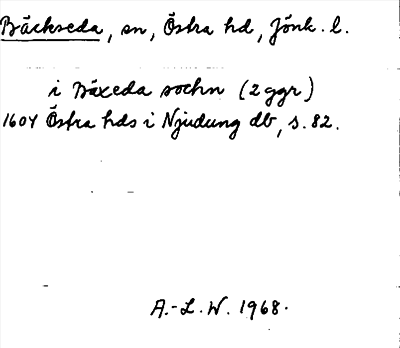 Bäckseda, sn, Östra hd, Jönk. l.
i Bäxeda sochn (2 ggr)
1604 Östra hds i Njudung db, s. 82.
A.-L. W. 1968.